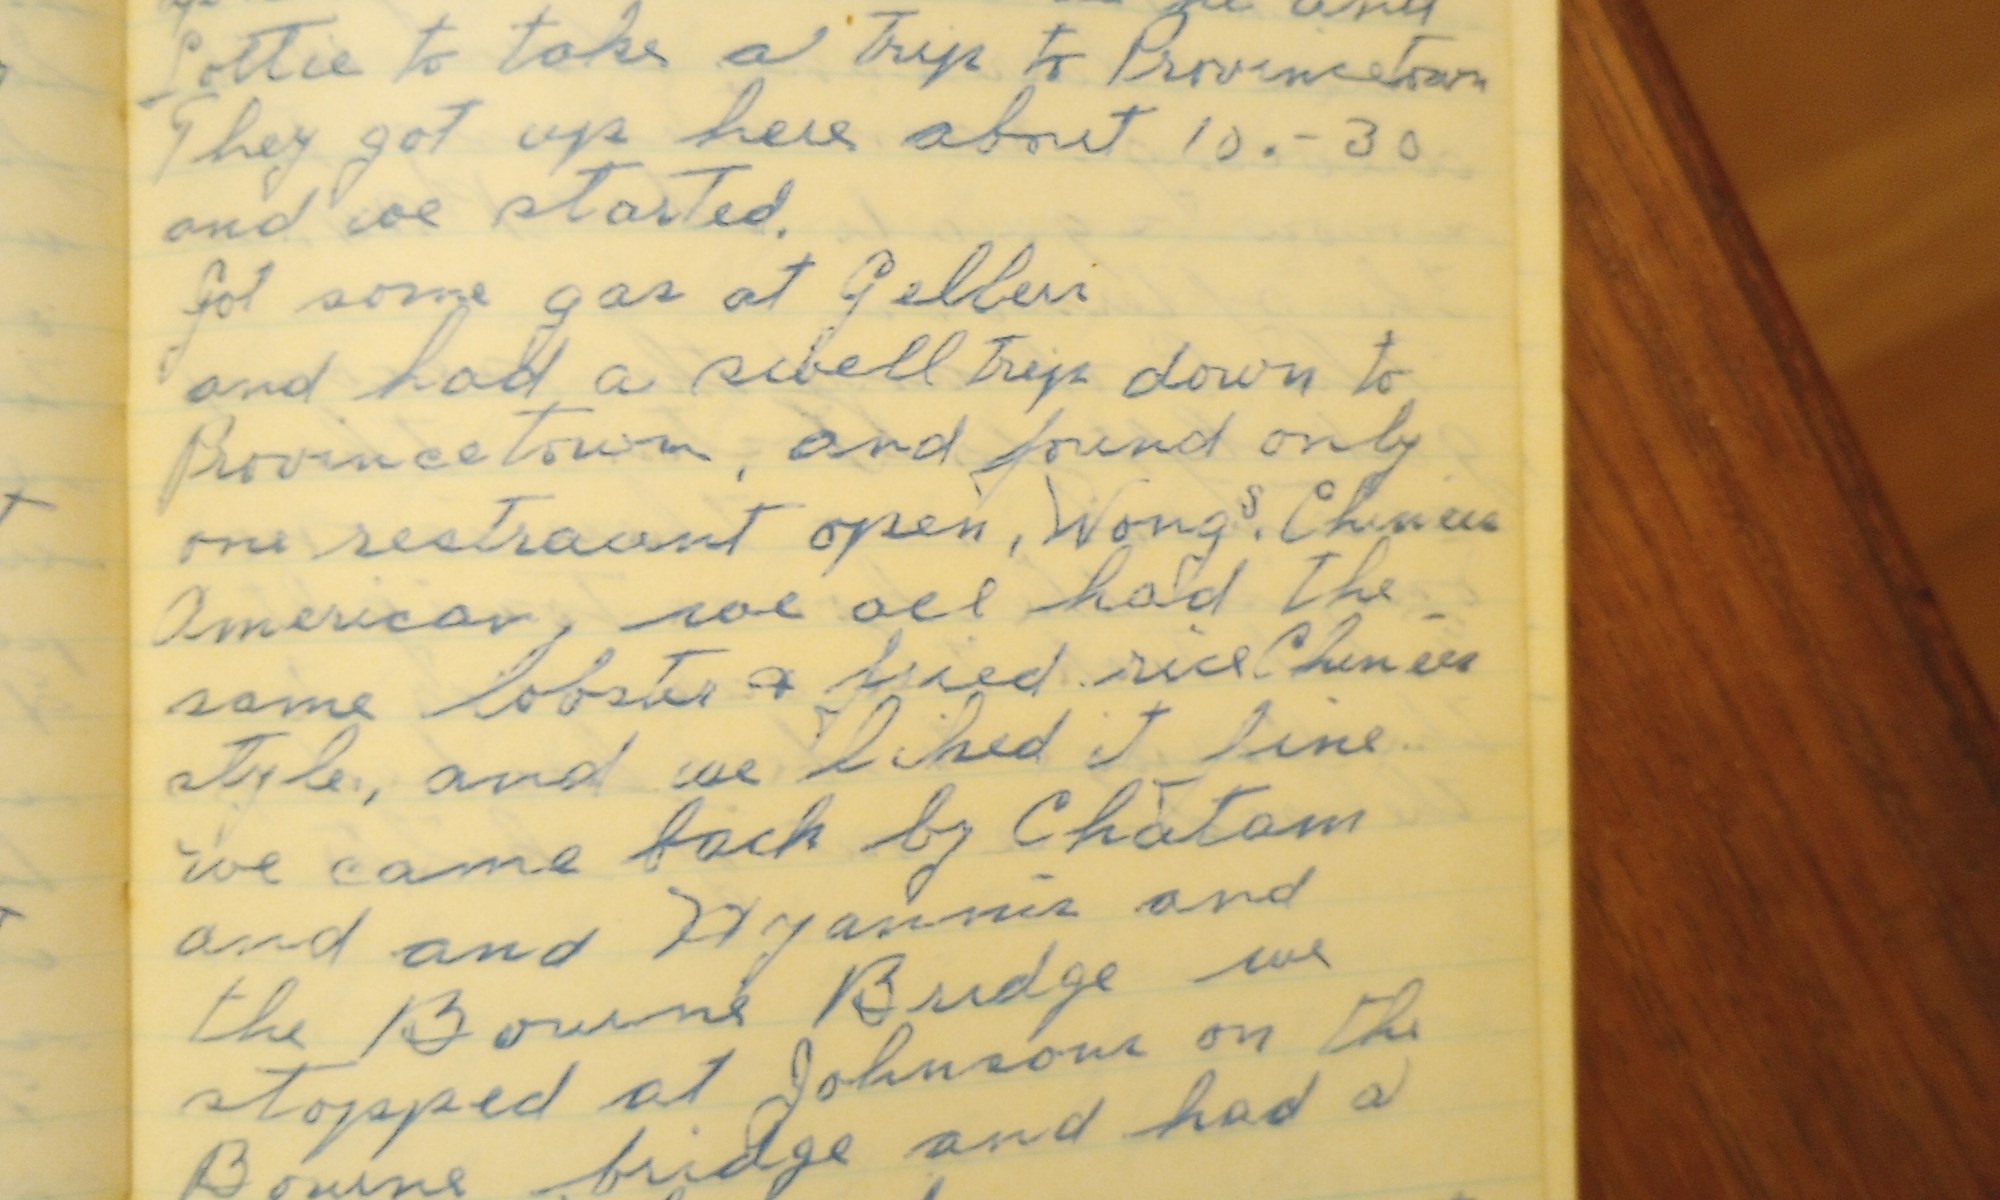 he and
Lottie to take a trip to Provincetown
They got up here about 10.-30
and we started.
Got some gas at
and had a swell trip down to
Provincetown, and found only
one restraunt open, Wongs. Chinees
American, we all had the
same lobster & fried rice Chinees
style, and we liked it fine.
we came back by Chatam
and and Hyannis and
the Bourne Bridge we
stopped at Johnsons on the
Bourne bridge and had a